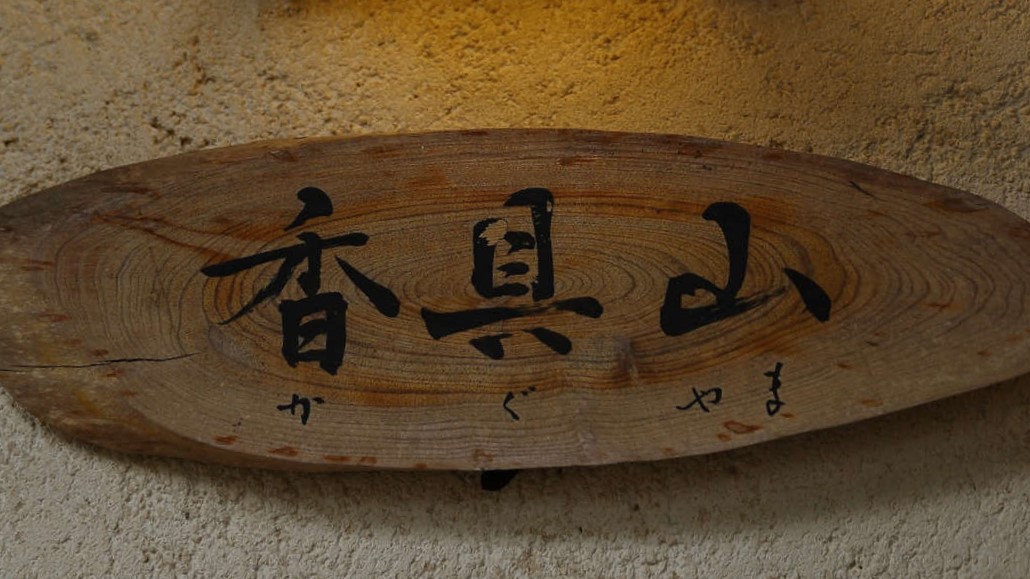 香具山
かぐやま